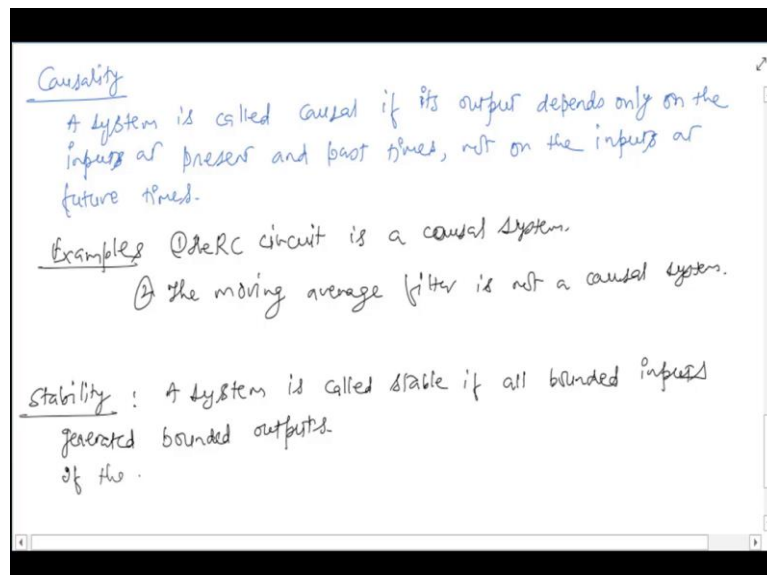 Causality
A system is called causal if its output depends only on the
inputs at present and past times, not on the inputs at
future times.
Examples ① The RC circuit is a causal system.
② The moving average filter is not a causal system.
Stability : A system is called stable if all bounded inputs
generated bounded outputs.
If the .